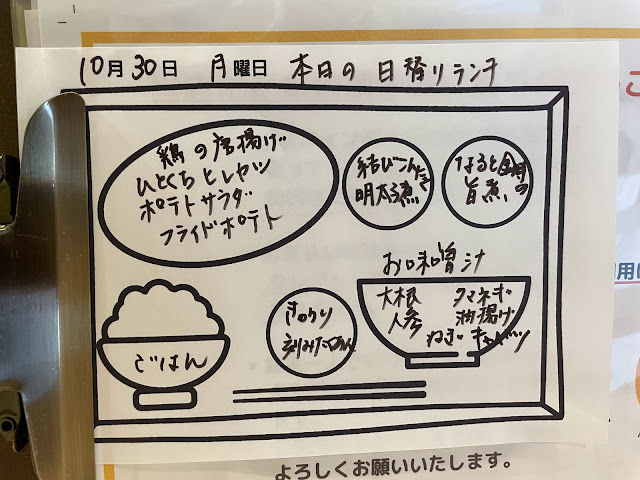 10月30日 月曜日 本日の日替りランチ
鶏の唐揚げ
ひとくちヒレカツ
ポテトサラダ
フライドポテト
結びこんにゃく
明太子煮
なると金時の
旨煮
お味噌汁
大根 タマネギ
人参 油揚げ
ねぎ キャベツ
きゅうり
刻みたくあん
ごはん
よろしくお願いいたします。